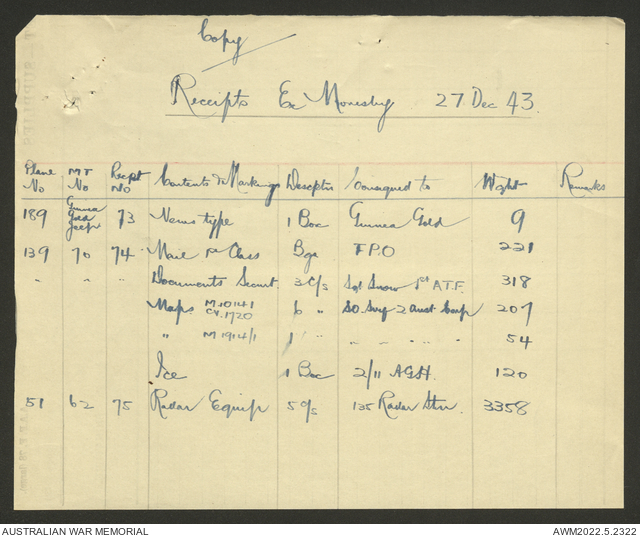 Copy
Receipts Ex Moresby 27 Dec 43.
Plane No M.T No Recpt No Contents & Markings Descptn Consigned to Wght Remarks
189 Guinea Gold Jeep 73 News type 1 Box Guinea Gold 9
139 70 74 Mail 1st Class Bge F.P.O 221
" " " Documents 3 C/s Sgt Snow 1st A.T.F. 318
Maps M.10141 CY.1720 6 " SO. Svy 2 Aust Corp 207
" M.1914/1 1 " " " " " 54
Ice 1 Box 2/11 A.G.H. 120
51 62 75 Radar Equip 5 C/s 135 Radar Stn. 3358
AUSTRALIAN WAR MEMORIAL AWM2022.5.2322